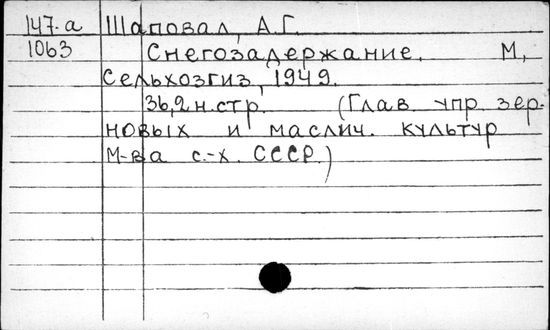 147-а Шаповал, А.Г.
1063 Снегозадержание. М,
Сельхозгиз, 1949.
36,2н.стр. (Глав упр. зер-
новых и маслич. культур
М-ва с.-х. СССР.)